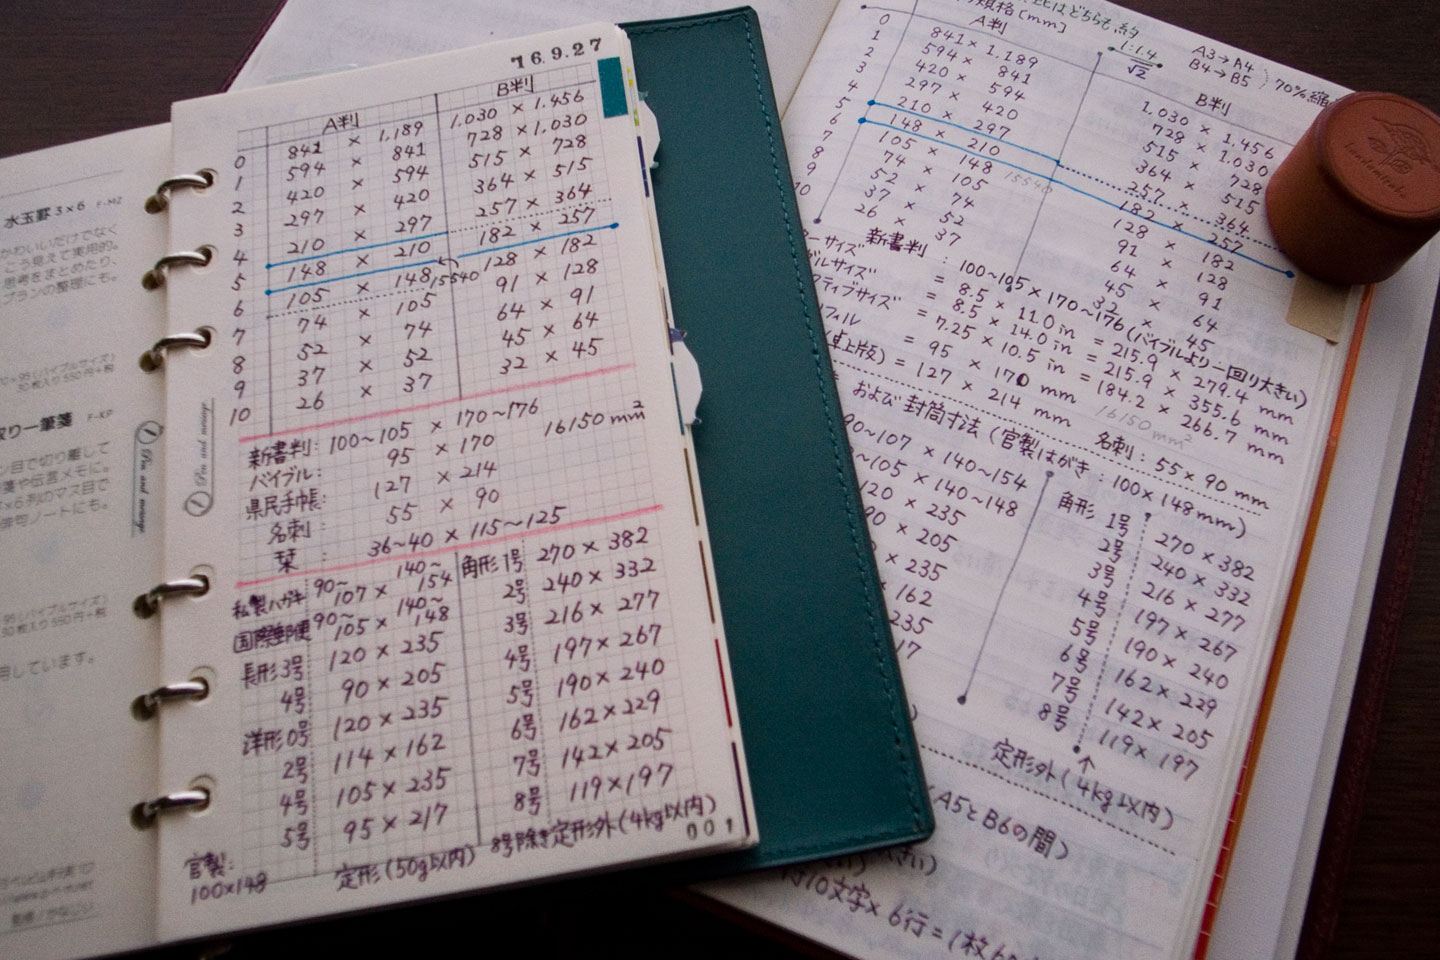 '16.9.27
A判 B判
0 841 × 1.189 1.030 × 1.456
1 594 × 841 728 × 1.030
2 420 × 594 515 × 728
3 297 × 420 364 × 515
4 210 × 297 257 × 364
5 148 × 210 182 × 257
6 105 × 148 128 × 182
15540
7 74 × 105 91 × 128
8 52 × 74 64 × 91
9 37 × 52 45 × 64
10 26 × 37 32 × 45
新書判: 100~105 × 170~176
バイブル: 95 × 170 16150 mm²
県民手帳: 127 × 214
名刺: 55 × 90
栞: 36~40 × 115~125
私製ハガキ 90~107 × 140~154
国際郵便 90~105 × 140~148
長形3号 120 × 235
4号 90 × 205
洋形0号 120 × 235
2号 114 × 162
4号 105 × 235
5号 95 × 217
角形1号 270 × 382
2号 240 × 332
3号 216 × 277
4号 197 × 267
5号 190 × 240
6号 162 × 229
7号 142 × 205
8号 119 × 197
官製:
100×148
定形(50g以内) 8号除き定形外(4kg以内)
001
Pen and message
水玉罫 3×6 F-MZ
かわいいだけでなく
こう見えて実用的。
思考をまとめたり、
プランの整理にも。
取り一筆箋 F-KP
ン目で切り離して
箋や伝言メモに。
×6列のマス目で
俳句ノートにも。
用しています。
Pen and message
はどちらも約
規格[mm] 1:1.4
√2
A3→A4
B4→B5 70%縮
A判 B判
0 841 × 1.189 1.030 × 1.456
1 594 × 841 728 × 1.030
2 420 × 594 515 × 728
3 297 × 420 364 × 515
4 210 × 297 257 × 364
5 148 × 210 182 × 257
6 105 × 148 128 × 182
15540
7 74 × 105 91 × 128
8 52 × 74 64 × 91
37 × 52 45 × 64
10 26 × 37 32 × 45
新書判: 100~105 × 170~176 (バイブルより一回り大きい)
ーサイズ = 8.5 × 11.0 in = 215.9 × 279.4 mm
ルサイズ = 8.5 × 14.0 in = 215.9 × 355.6 mm
クティブサイズ = 7.25 × 10.5 in = 184.2 × 266.7 mm
フィル = 95 × 170 mm 16150mm²
(卓上版) = 127 × 214 mm 名刺: 55 × 90 mm
および封筒寸法(官製はがき: 100×148mm)
90~107 × 140~154
~105 × 140~148
120 × 235
90 × 205
× 235
× 162
235
17
角形 1号 270 × 382
2号 240 × 332
3号 216 × 277
4号 197 × 267
5号 190 × 240
6号 162 × 229
7号 142 × 205
8号 119 × 197
↑
定形外(4kg以内)
A5とB6の間)
10文字× 6行=(1枚